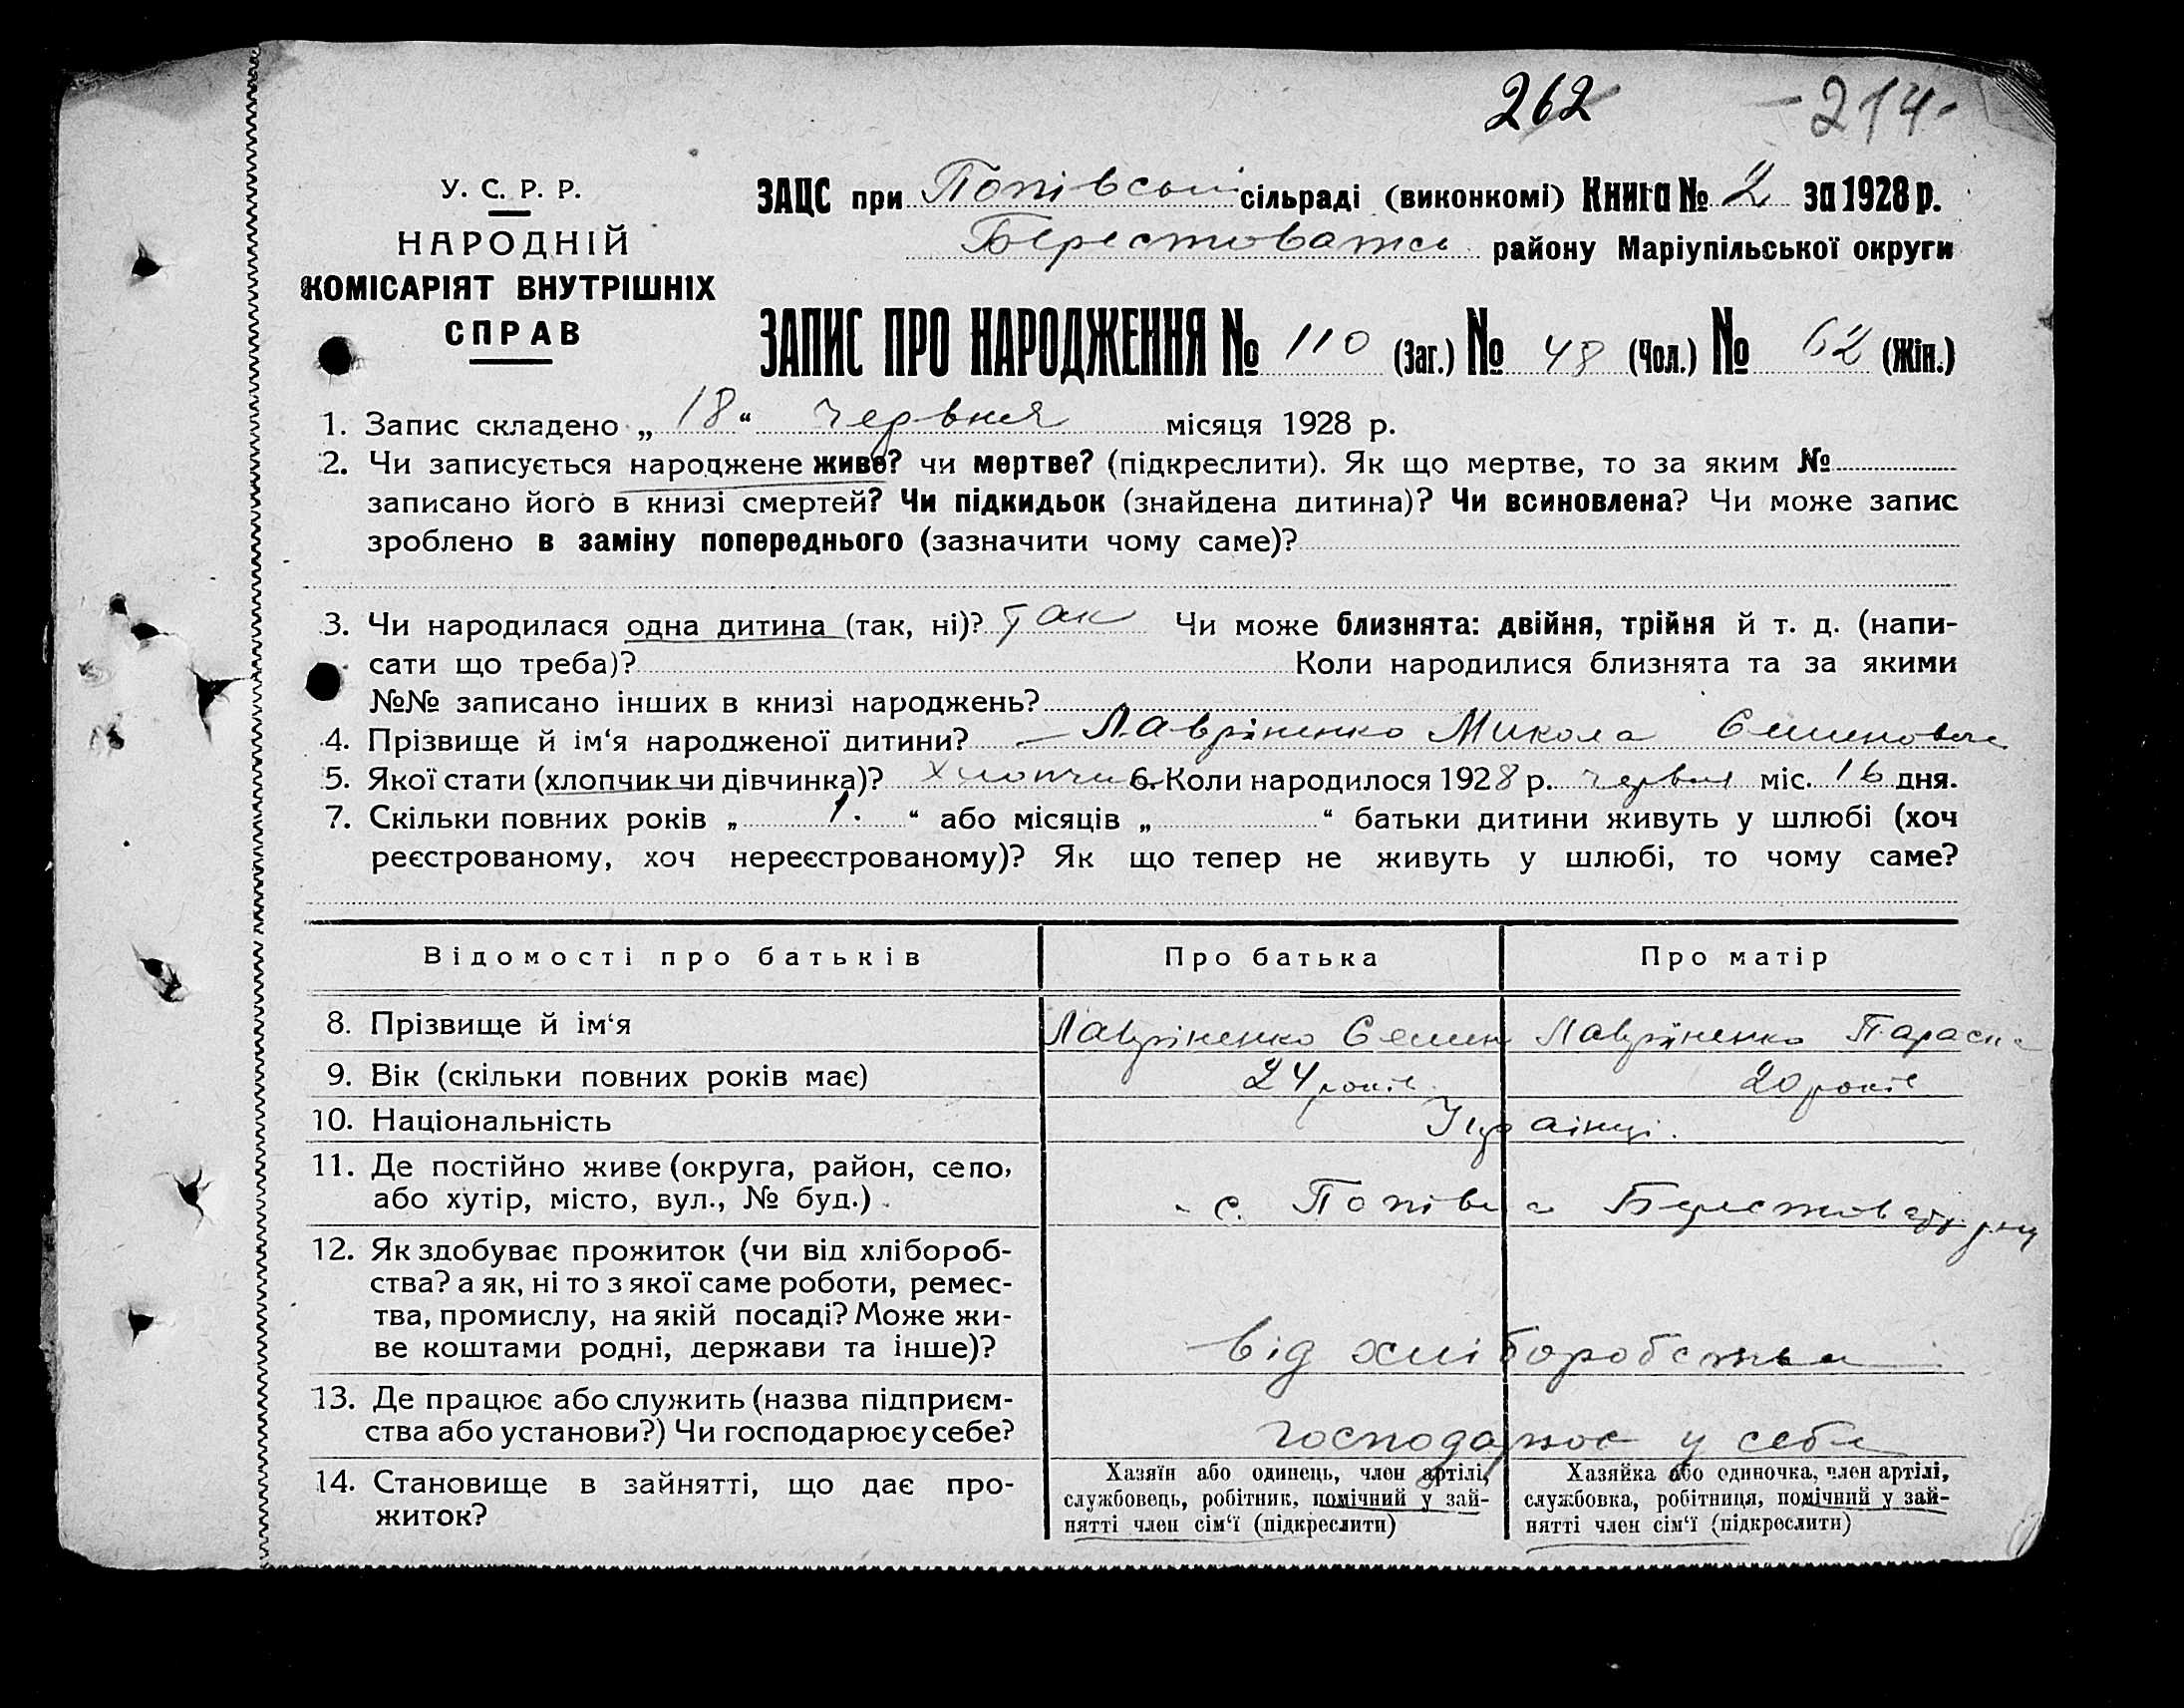 262 - 214 -
У. С. Р. Р.
НАРОДНІЙ
КОМІСАРІЯТ ВНУТРІШНІХ
СПРАВ
ЗАЦС при Попівськ сільраді (виконкомі) Книга № 2 за 1928 р.
Берестоватсь району Маріупільської округи
ЗАПИС ПРО НАРОДЖЕННЯ № 110 (Заг.) № 48 (Чол.) № 62 (Жін.)
1. Запис складено „ 18 “ червня місяця 1928 р.
2. Чи записується народжене живе? чи мертве? (підкреслити). Як що мертве, то за яким №
записано його в книзі смертей? Чи підкидьок (знайдена дитина)? Чи всиновлена? Чи може запис
зроблено в заміну попереднього (зазначити чому саме)?
3. Чи народилася одна дитина (так, ні)? Так Чи може близнята: двійня, трійня й т. д. (напи-
сати що треба)? Коли народилися близнята та за якими
№№ записано інших в книзі народжень?
4. Прізвище й ім‘я народженої дитини? — Лавріненко Микола Семенович
5. Якої стати (хлопчик чи дівчинка)? хлопчик 6. Коли народилося 1928 р. червня міс. 16 дня.
7. Скільки повних років „ 1. “ або місяців „ “ батьки дитини живуть у шлюбі (хоч
реєстрованому, хоч нереєстрованому)? Як що тепер не живуть у шлюбі, то чому саме?
Відомості про батьків Про батька Про матір
8. Прізвище й ім‘я Лавріненко Семен Лавріненко Параска
9. Вік (скільки повних років має) 24 років 20 років
10. Національність Українці.
11. Де постійно живе (округа, район, село,
або хутір, місто, вул., № буд.) с. Попівка Берестоват. р-ну
12. Як здобуває прожиток (чи від хлібороб-
ства? а як, ні то з якої саме роботи, ремес-
тва, промислу, на якій посаді? Може жи-
ве коштами родні, держави та інше)? Від хліборобства
13. Де працює або служить (назва підприєм-
ства або установи?) Чи господарює у себе? господарює у себе
14. Становище в зайнятті, що дає про-
житок?
Хазяїн або одинець, член артілі,
службовець, робітник, помічний у зай-
нятті член сім‘ї (підкреслити)
Хазяйка або одиночка, член артілі,
службовка, робітниця, помічний у зай-
нятті член сім‘ї (підкреслити)